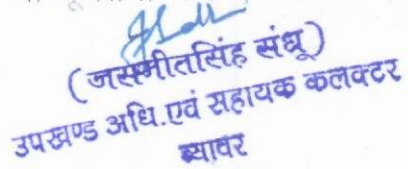 (जसमीतसिंह संधू)
उपखण्ड अधि.एवं सहायक कलक्टर
ब्यावर